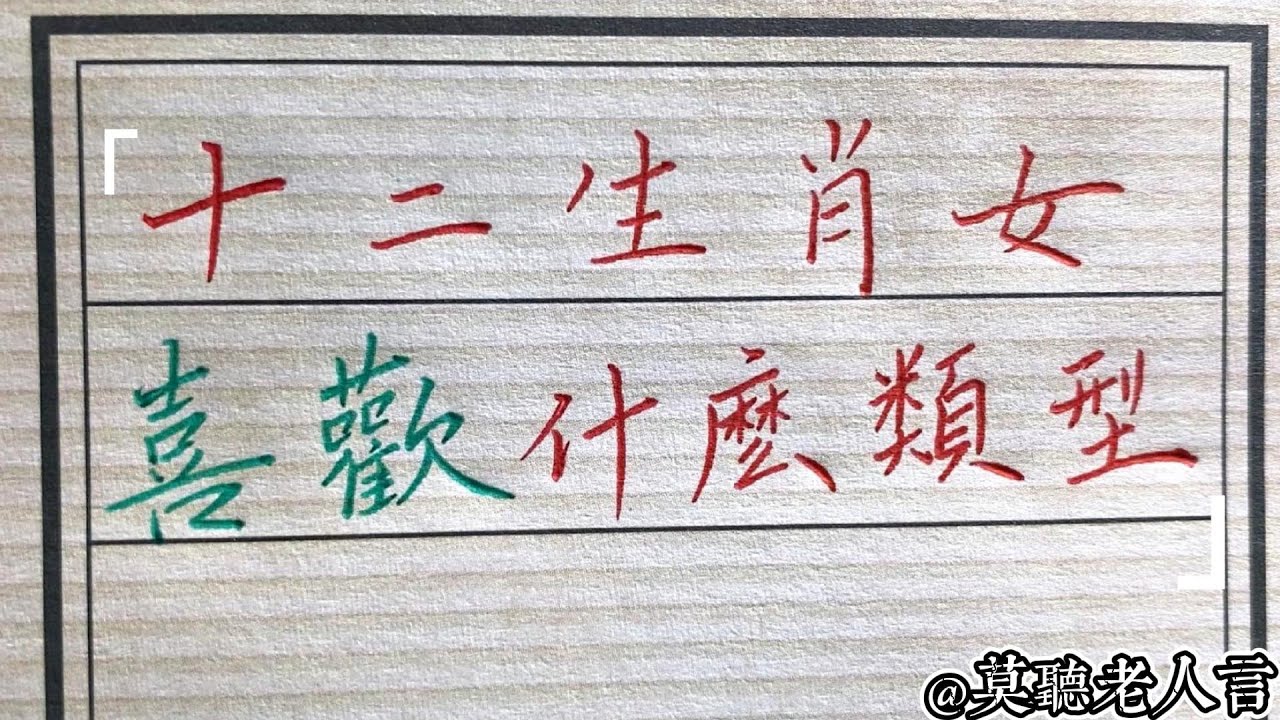 「十二生肖女
喜歡什麼類型」
@莫聽老人言